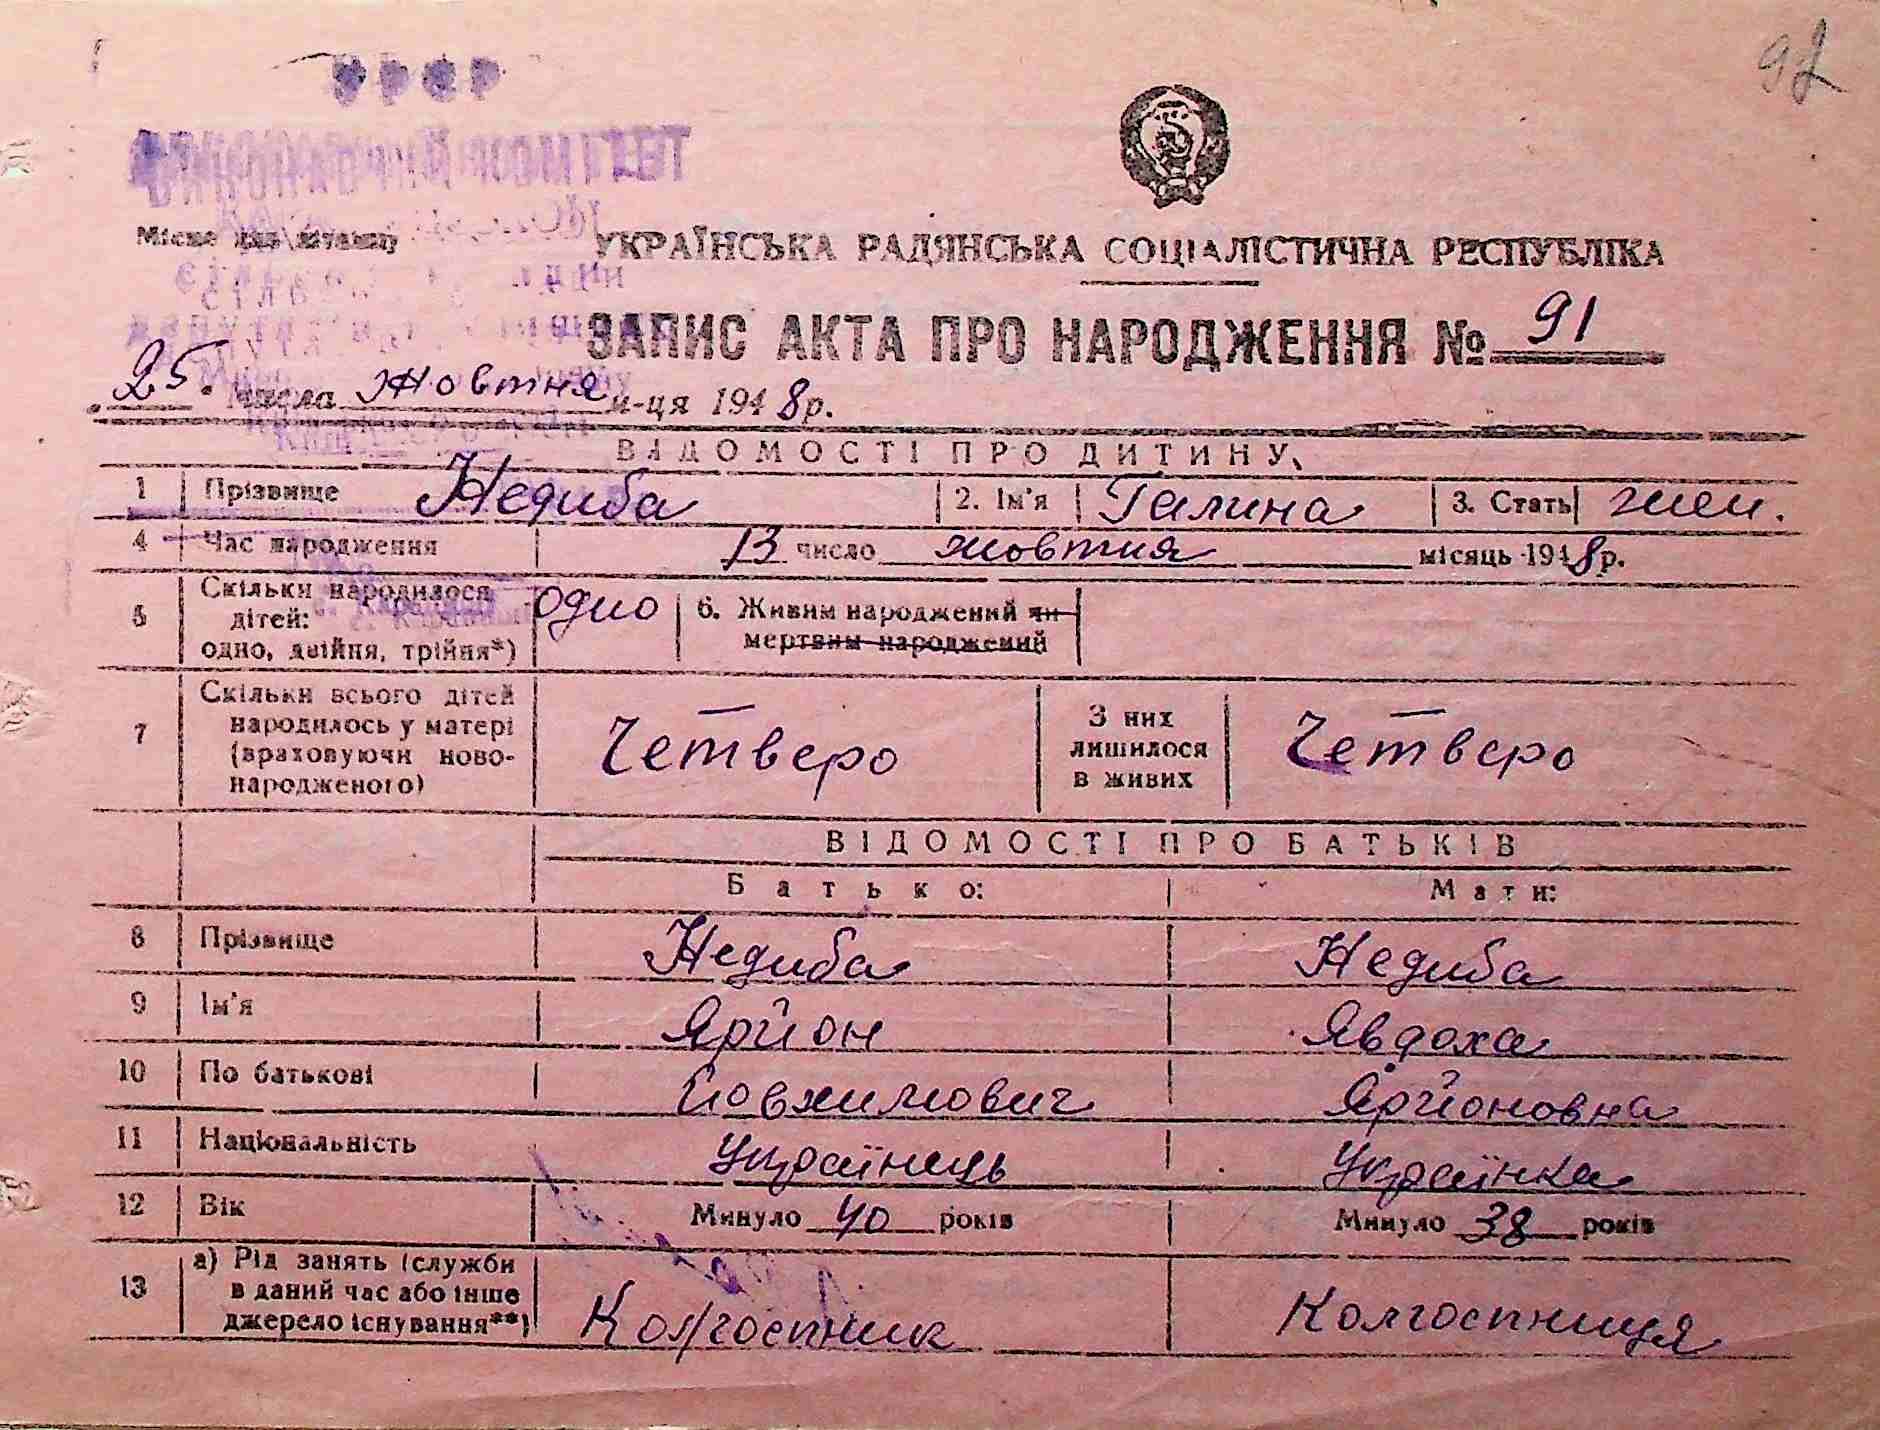 92
УРСР
ВИКОНАВЧИЙ КОМІТЕТ
Місце для штампу
УКРАЇНСЬКА РАДЯНСЬКА СОЦІАЛІСТИЧНА РЕСПУБЛІКА
ЗАПИС АКТА ПРО НАРОДЖЕННЯ № 91
25 числа Жовтня м-ця 1948р.
ВІДОМОСТІ ПРО ДИТИНУ
1 Прізвище Недиба 2. Ім'я Галина 3. Стать жен.
4 Час народження 13 число жовтня місяць 1948р.
5 Скільки народилося дітей: одно, двійня, трійня*) одно 6. Живим народжений чи мертвим народжений
7 Скільки всього дітей народилось у матері (враховуючи новонародженого) Четверо З них лишилося в живих Четверо
ВІДОМОСТІ ПРО БАТЬКІВ
Батько: Мати:
8 Прізвище Недиба Недиба
9 Ім'я Ярйон Явдоха
10 По батькові Йовхимович Ярйоновна
11 Національність Українець Українка
12 Вік Минуло 40 років Минуло 38 років
13 а) Рід занять (служби в даний час або інше джерело існування**) Колгоспник Колгоспниця